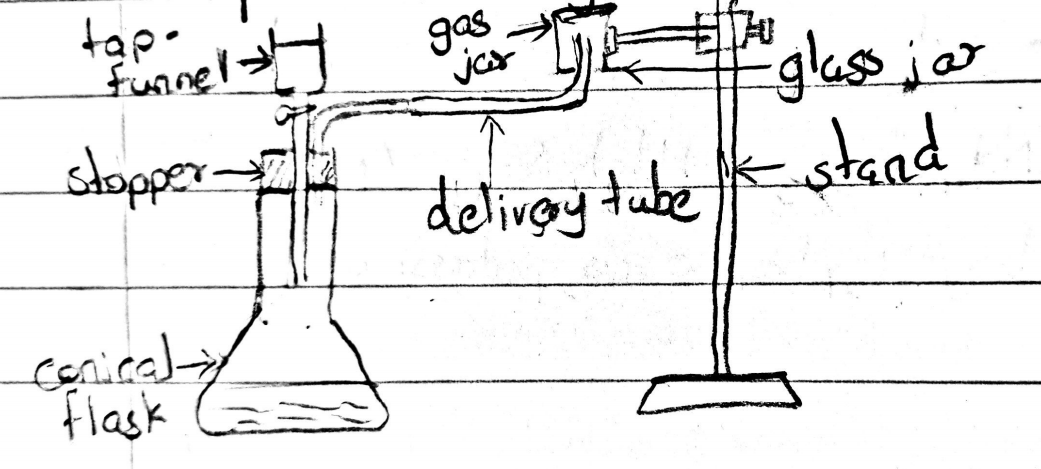 tap-
funnel
gas
jar
glass jar
stopper
delivery tube
stand
conical
flask